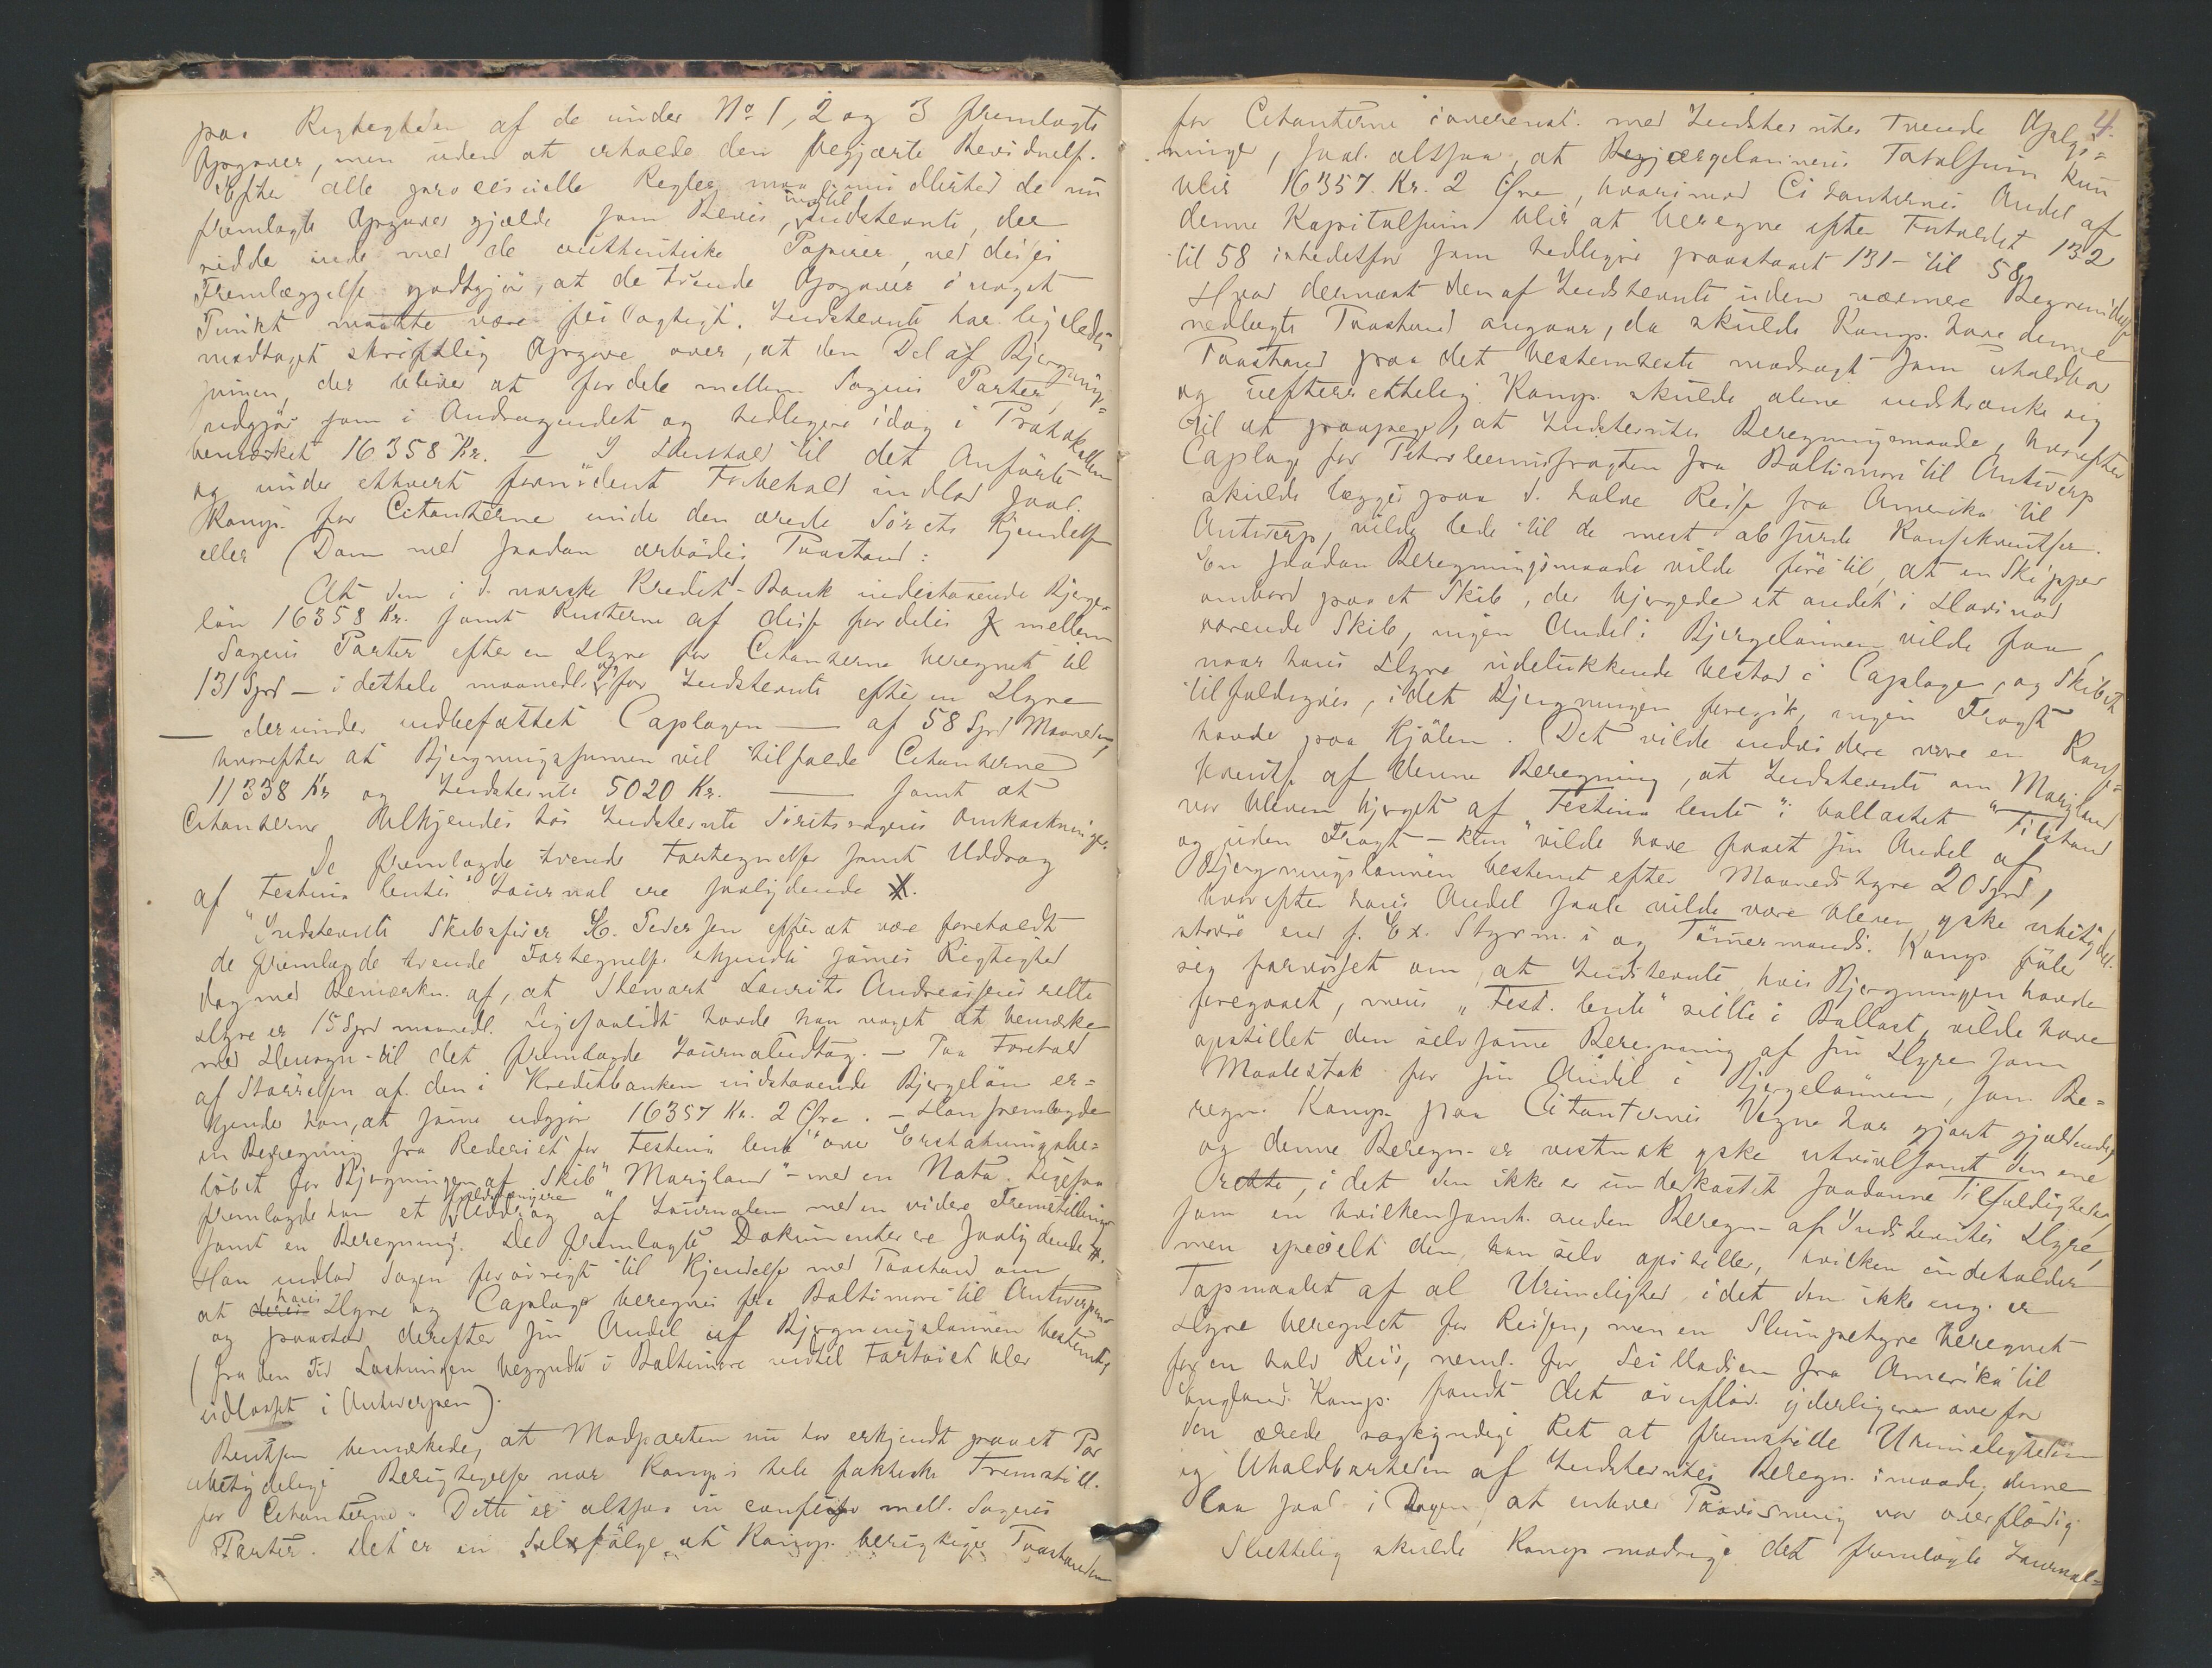 paa Rigtigheden af de under No 1, 2 og 3 fremlagte
Opgaver, men uden at erholde den begjærte Bevidnelse.
Efter alle processuelle Regler maa imidlertid de nu
fremlagte Opgaver gjælde som Bevis, indtil Indstevnte, der
sidder inde med de authentiske Papirer, ved disses
Fremlæggelse godtgjør, at de tvende Opgaver i noget
Punkt maatte være feilagtigt. Indstevnte har ligeledes
modtaget skriftlig Opgave over, at den Del af Bjergnings=
summen, der bliver at fordele mellem Sagens Parter,
udgjør som i Andragendet og tidligere idag i Protokollen
bemærket 16358 Kr. — I Henhold til det Anførte
og under ethvert fornødent Forbehold indlod saal.
Komp. for Citanterne under den ærede Sørets Kjendelse
eller Dom med saadan ærbødig Paastand:
At den i d. norske Kredit-Bank indestaaende Bjerge=
løn 16358 Kr. samt Renterne af disse fordeles mellem
Sagens Parter efter en Hyre for Citanterne beregnet til
131 Spd — i dethele maanedl. og for Indstevnte efter en Hyre
— derunder indbefattet Caplagen — af 58 Spd Maaneden,
hvorefter at Bjergningssummen vil tilfalde Citanterne
11338 Kr og Indstevnte 5020 Kr. — samt at
Citanterne tilkjendes hos Indstevnte Søretssagens Omkostninger.
De fremlagde tvende Fortegnelser samt Uddrag
af Festina lentes Journal ere saalydende X.
Indstevnte Skibsfører H. Pedersen efter at være foreholdt
de fremlagde tvende Fortegnelser erkjendte sammes Rigtighed
dog med Bemærkn. af, at Stewart Laurits Andreassens rette
Hyre er 15 Spd maanedl. Ligesaalidt havde han noget at bemærke
med Hensyn til det fremlagde Journaludtog. — Paa Forehold
af Størrelsen af den i Kreditbanken indestaaende Bjergeløn er=
kjender han, at samme udgjør 16357 Kr. 2 Øre. — Han fremlagde
en Beregning fra Rederiet for Festina lente over Erstatningsbe=
løbet for Bjergningen af Skib "Maryland" — med en Nota. Ligesaa
fremlagde han et fuldstændigere Uddrag af Journalen med en videre Fremstilling
samt en Beregning. De fremlagte Dokumenter ere saalydende X.
Han indlod Sagen forøvrigt til Kjendelse med Paastand om
at hans Hyre og Caplage beregnes fra Baltimore til Antwerpen
og paastod derefter sin Andel af Bjergningslønnen bestemt,
(fra den Tid Lastningen begyndte i Baltimore indtil Fartøiet blev
udlosset i Antwerpen).
Bentsen bemærkede, at Modparten nu har erkjendt paa et Par
ubetydelige Berigtigelser nær Komp's hele faktiske Fremstill.
for Citanterne. Dette er altsaa in confesso mell. Sagens
Parter. Det er en Selvfølge at Komp. berigtiger Paastanden
4.
for Citanterne i overenst. med Indstevntes tvende Oplys=
ninger, saal. altsaa, at Bjergelønnens Totalsum kun
blir 16357 Kr. 2 Øre, hvorimod Citanternes Andel af
denne Kapitalsum blir at beregne efter Forholdet 132
til 58 istedetfor som tidligere paastaaet 131 — til 58.
Hvad dernæst den af Indstevnte uden nærmere Begrundelse
nedlagte Paastand angaar, da skulde Komp. have denne
Paastand paa det bestemteste modsagt som uholdbar
og uefterrettelig. Komp. skulde alene indskrænke sig
til at paapege, at Indstevntes Beregningsmaade, hvorefter
Caplag for Petroleumsfragten fra Baltimore til Antwerp
skulde lægges paa d. halve Reise fra Amerika til
Antwerp, vilde lede til de mest absurde Konsekventser.
En saadan Beregningsmaade vilde føre til, at en Skipper
ombord paa et Skib, der bjergede et andet i Havsnød
værende Skib, ingen Andel i Bjergelønnen vilde faa,
naar hans Hyre udelukkende bestod i Caplage, og Skibet
tilfældigvis, idet Bjergningen foregik, ingen Fragt
havde paa Kjølen. Det vilde endvidere være en Konse=
kvents af denne Beregning, at Indstevnte om Maryland
var bleven bjerget af "Festina lente" i ballastet Tilstand
og uden Fragt — kun vilde have faaet sin Andel af
Bjergningslønnen bestemt efter Maaneds Hyre 20 Spd,
hvorefter hans Andel saal. vilde være bleven ganske ubetydel.
større end f. Ex. Styrm.s og Tømmermands. Komp. føler
sig forvisset om, at Indstevnte, hvis Bjergningen havde
foregaaet, mens "Fest. lente" seilte i Ballast, vilde have
opstillet den selvsamme Beregning af sin Hyre som
Maalestok for sin Andel i Bjergelønnen, som Be=
regn. Komp. paa Citanternes Vegne har gjort gjældende,
og denne Beregn. er vistnok ganske utvivlsomt den ene
rette, idet den ikke er underkastet saadanne Tilfældigheder,
som en hvilkensomh. anden Beregn. af Indstevntes Hyre,
men specielt den, han selv opstiller, hvilken indeholder
Topmaalet af al Urimelighed, idet den ikke eng. er
Hyre beregnet for Reisen, men en Slumpehyre beregnet
for en halv Reis, neml. for Seilladsen fra Amerika til
England. Komp. fandt det overflød. yderligere overfor
den ærede sagkyndige Ret at fremstille Urimeligheden
og Uholdbarheden af Indstevntes Beregn.smaade, denne
laa saal. i Dagen, at enhver Paavisning var overflødig.
Slettelig skulde Komp modsige det fremlagte Journal=